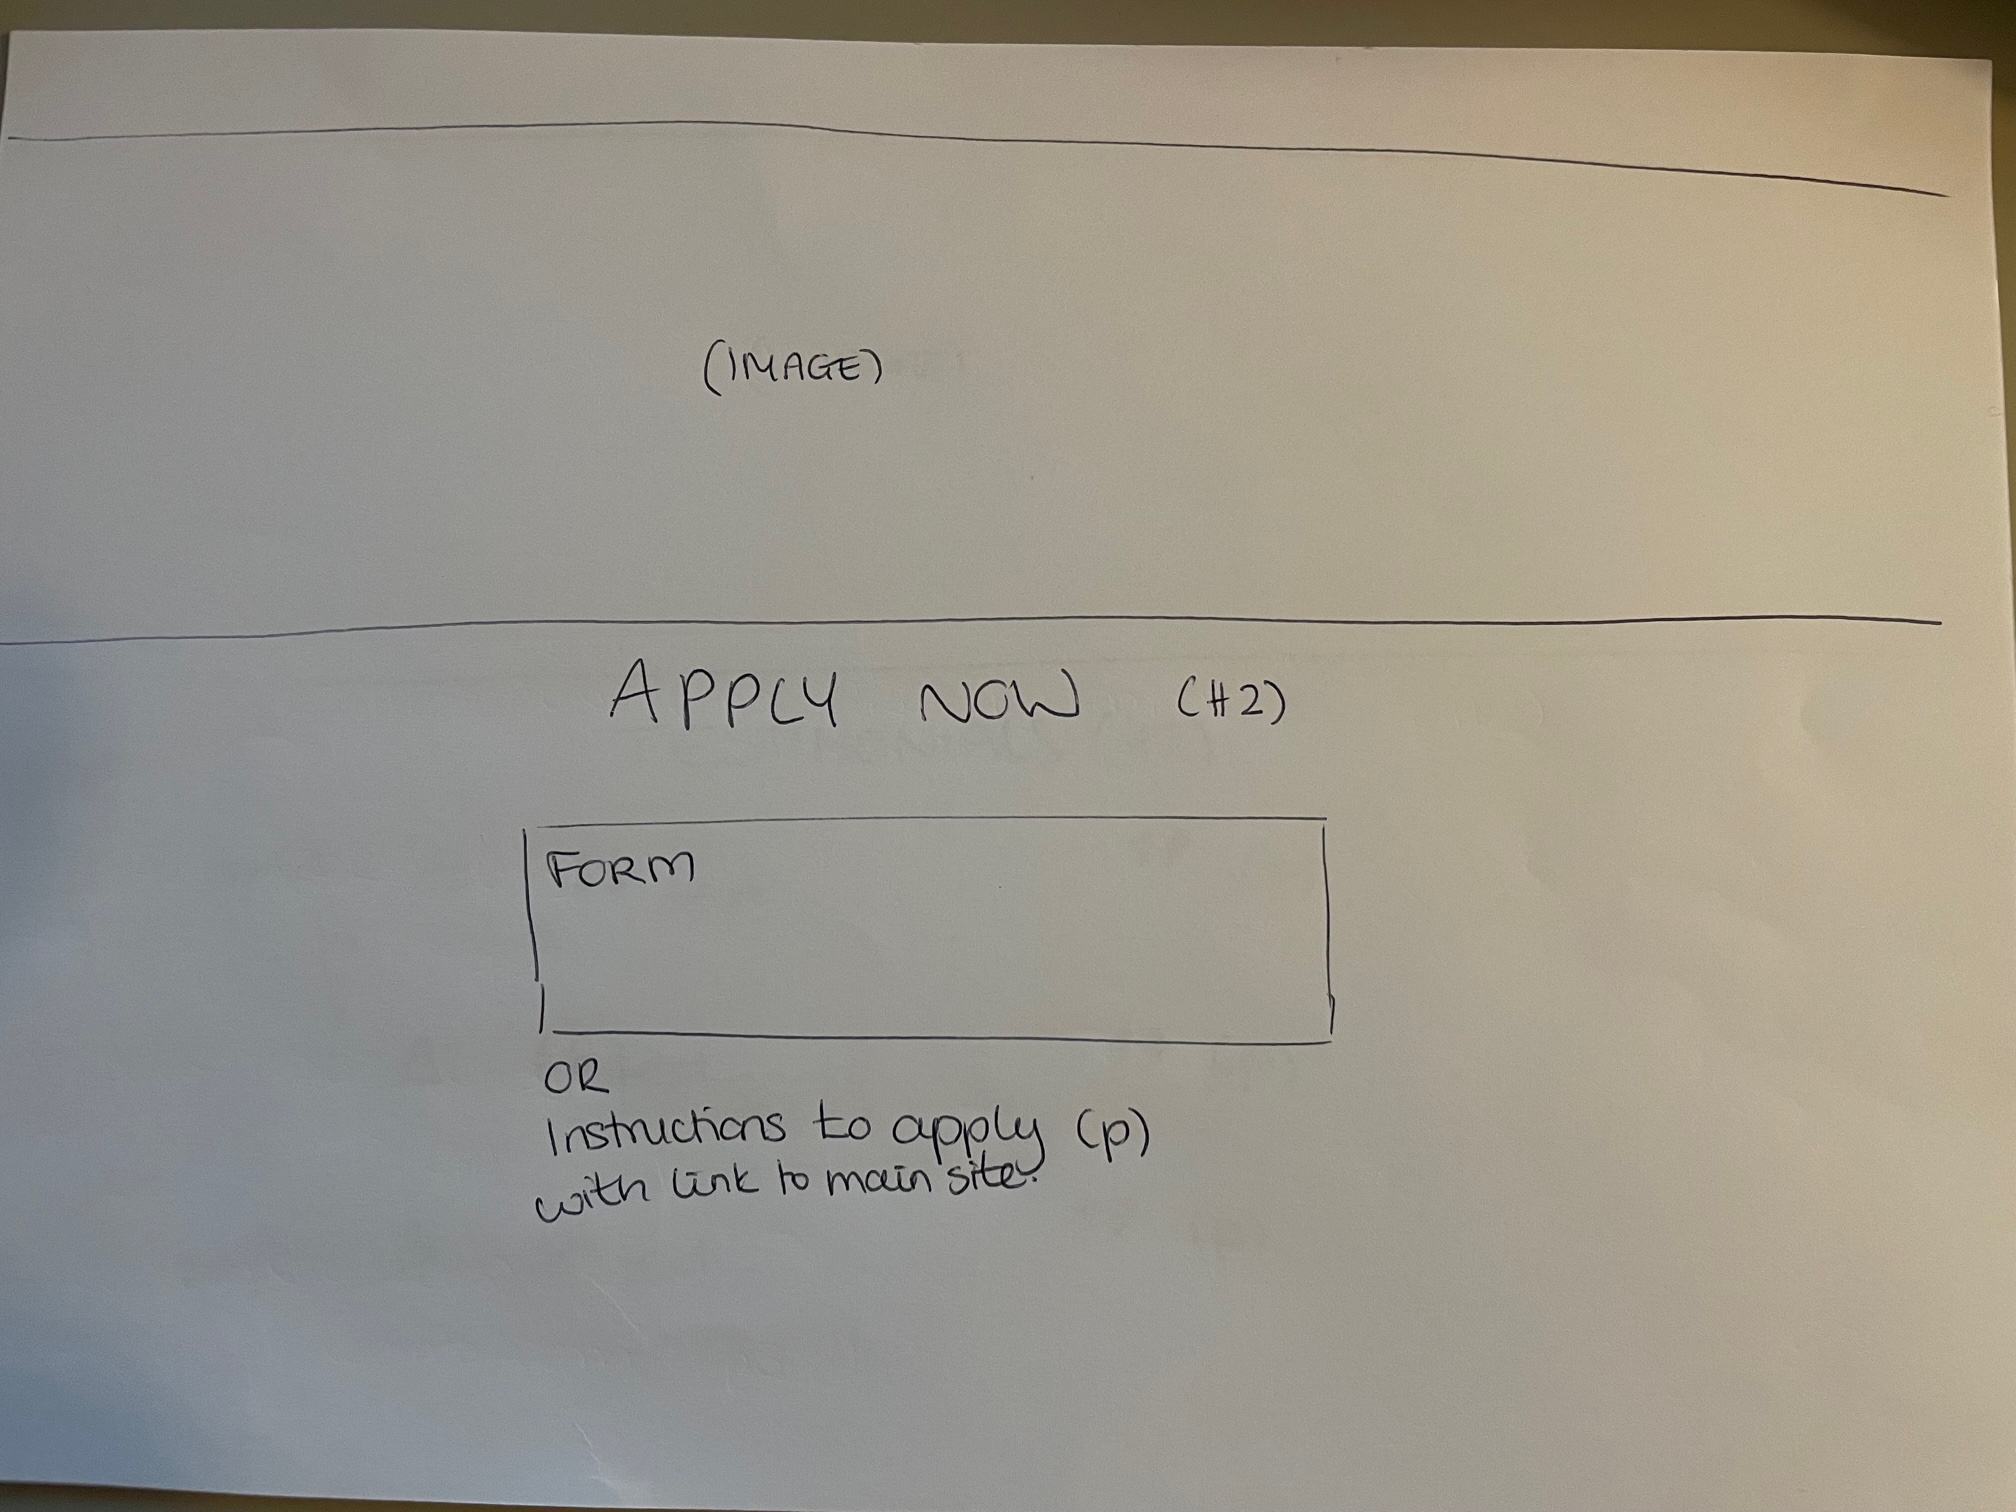 (IMAGE)
APPLY NOW (H2)
FORM
OR
Instructions to apply (p)
with link to main site.